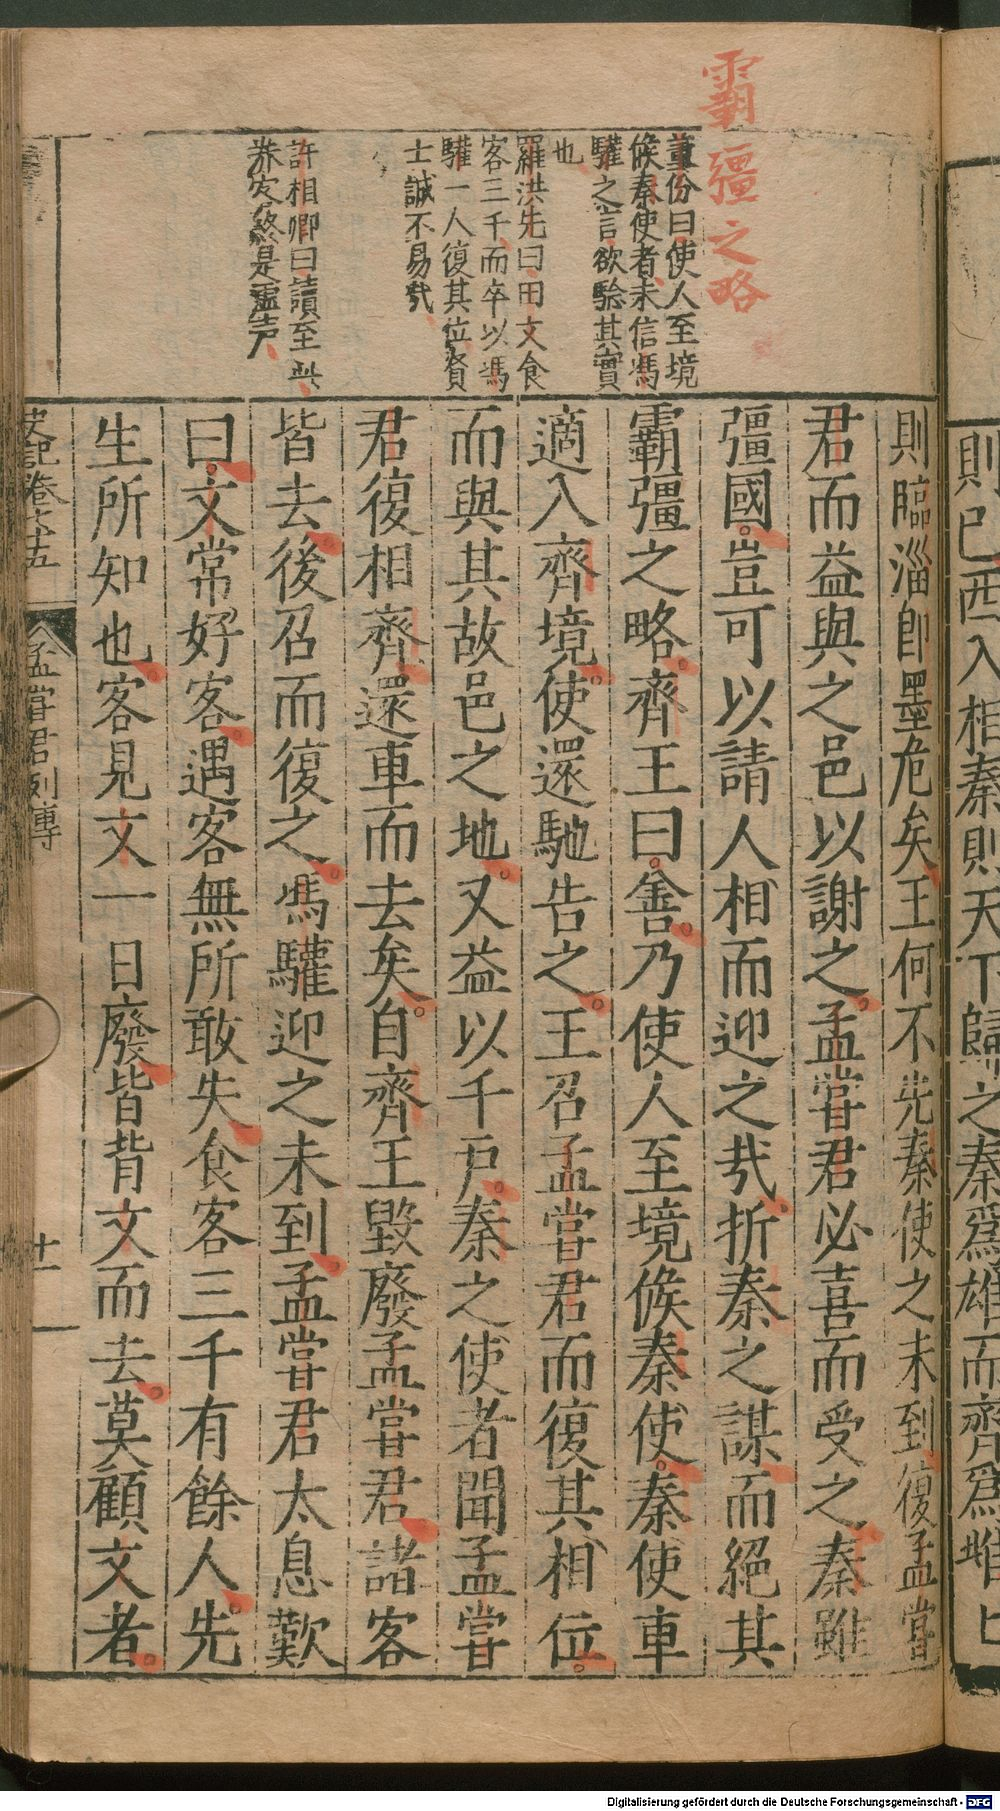 則已西入相秦則天下歸之秦爲雄而齊爲雌
霸彊之略
董份曰使人至境
候秦使者未信馮
驩之言欲驗其實
也
羅洪先曰田文食
客三千而卒以馮
驩一人復其位賢
士誠不易哉
許相卿曰讀至此
則臨淄卽墨危矣王何不先秦使之未到復孟嘗
君而益與之邑以謝之孟嘗君必喜而受之秦雖
彊國豈可以請人相而迎之哉折秦之謀而絕其
霸彊之略齊王曰善乃使人至境候秦使秦使車
適入齊境使還馳告之王召孟嘗君而復其相位
而與其故邑之地又益以千戶秦之使者聞孟嘗
君復相齊還車而去矣自齊王毀廢孟嘗君諸客
皆去後召而復之馮驩迎之未到孟嘗君太息歎
曰文常好客遇客無所敢失食客三千有餘人先
生所知也客見文一日廢皆背文而去莫顧文者
史記卷七十五
孟嘗君列傳
十一
Digitalisierung gefördert durch die Deutsche Forschungsgemeinschaft - DFG